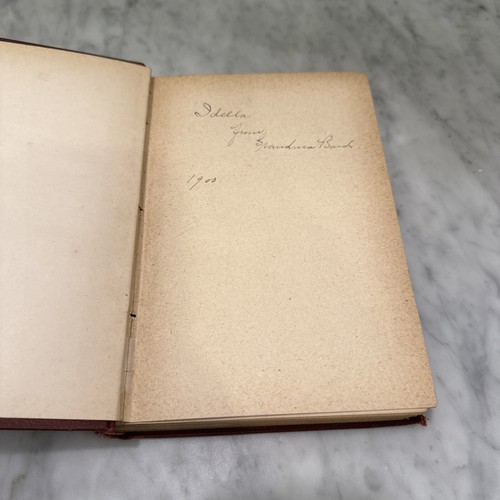 Idella
from
Grandma
1900